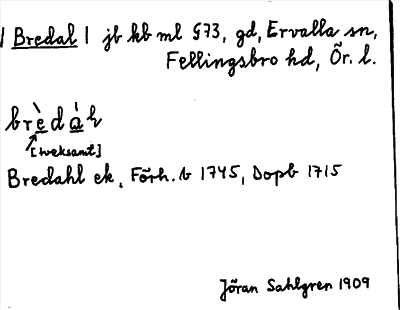 | Bredal | jb kb ml §73, gd, Ervalla sn,
Fellingsbro hd, Ör. l.
brèdàh
[tveksamt]
Bredahl ek, Förh.b 1745, Dopb 1715
Jöran Sahlgren 1909